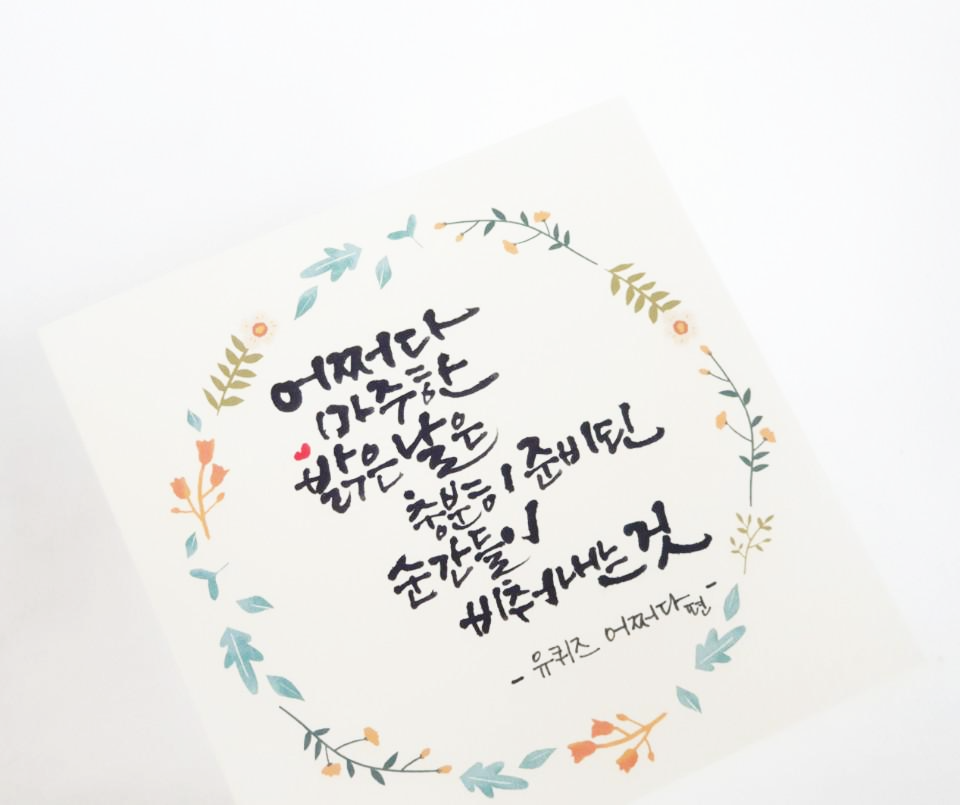 어쩌다
마주한
밝은 날은
충분히 준비된
순간들이
비춰내는 것
- 유퀴즈 어쩌다 편 -